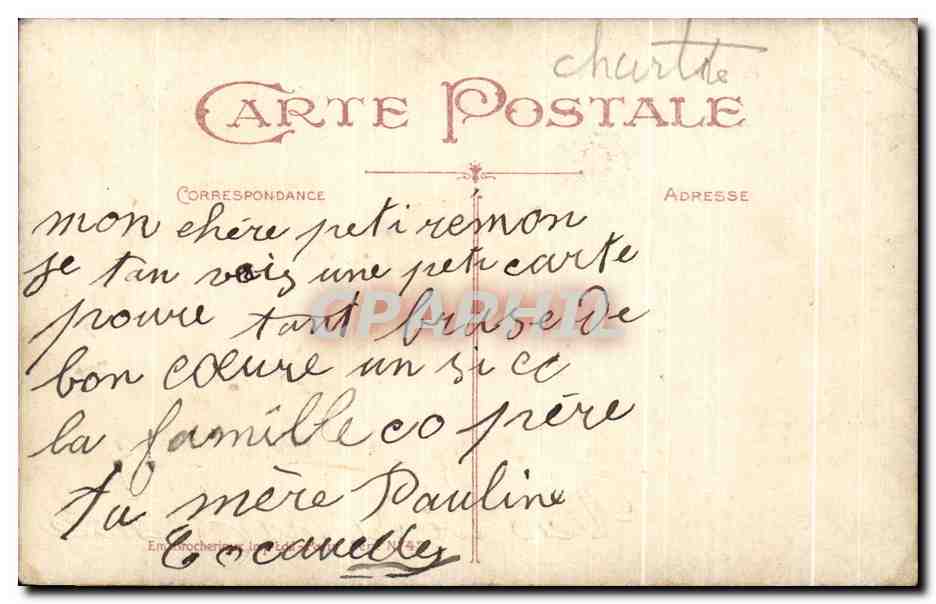 chartte
CARTE POSTALE
CORRESPONDANCE
ADRESSE
mon chére peti remon
je tan vois une peti carte
poure tant brase de
bon coeure un si cc
la famille co pére
ta mère Pauline
CPAPHIL